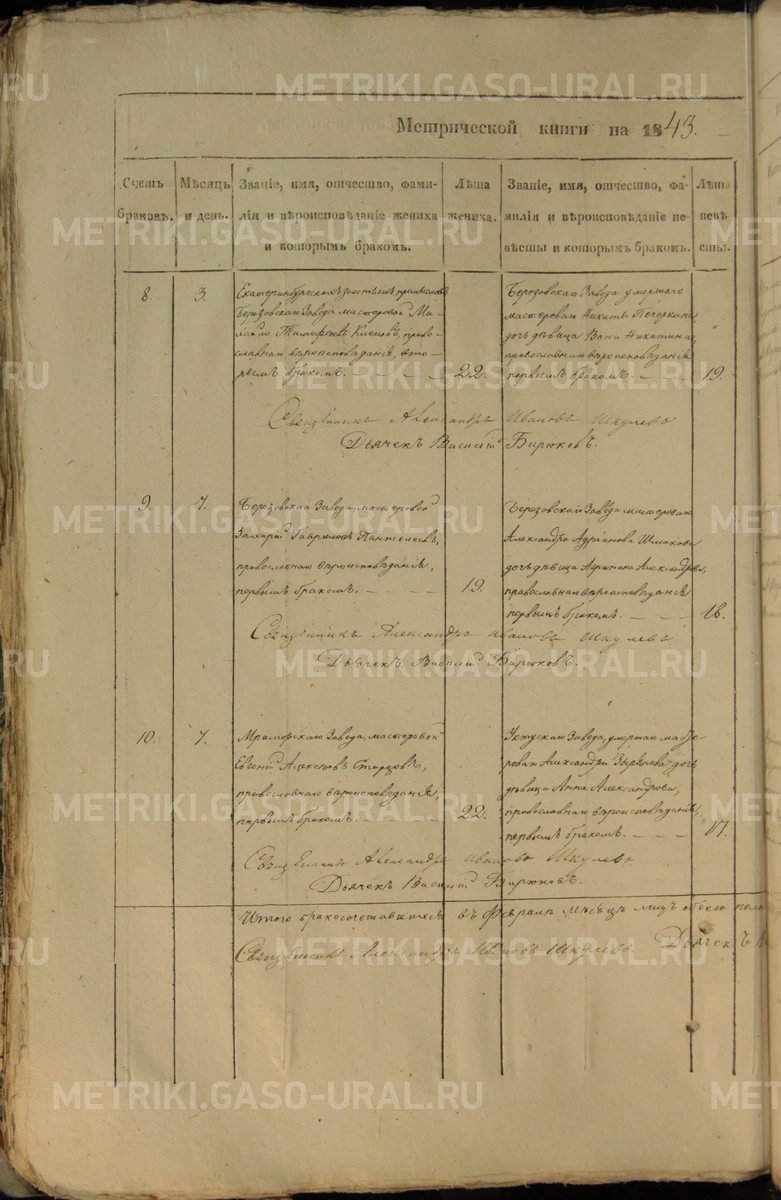 Метрической книги на 1843.
Счетъ браковъ.
Мѣсяцъ и день.
Званіе, имя, отчество, фами-
лія и вѣроисповѣданіе жениха
и которымъ бракомъ.
Лѣта
жениха.
Званіе, имя, отчество, фа-
милія и вѣроисповѣданіе не-
вѣсты и которымъ бракомъ.
Лѣта
невѣ
сты.
8.
3.
Екатеринбургскихъ золотыхъ промысловъ
Березовскаго Завода мастеровой Ми-
хайло Тимофеевъ, право-
славнаго вѣроисповѣданія, вто-
рымъ бракомъ.
22.
Березовскаго Завода умершаго
мастероваго Никиты Печеркина
дочь дѣвица Васса Никитина,
православнаго вѣроисповѣданія
первымъ бракомъ.
19.
Священникъ Александръ Ивановъ Шкулевъ
Дьячекъ Василій Бирюковъ.
9.
7.
Березовскаго Завода, мастеровой
Захарій Гавриловъ Пантелеевъ,
православнаго вѣроисповѣданія,
первымъ бракомъ.
19.
Березовскаго Завода мастероваго
Александра Адріанова
дочь дѣвица Александрова,
православнаго вѣроисповѣданія
первымъ бракомъ.
18.
Священникъ Александръ Ивановъ Шкулевъ
Дьячекъ Василій Бирюковъ.
10.
7.
Мраморскаго Завода, мастеровой
Евгеній Алексѣевъ,
православнаго вѣроисповѣданія,
первымъ бракомъ.
22.
Уктускаго Завода, умершаго масте-
роваго Александра Зырянова дочь
дѣвица Анна Александрова,
православнаго вѣроисповѣданія,
первымъ бракомъ.
17.
Священникъ Александръ Ивановъ Шкулевъ
Дьячекъ Василій Бирюковъ.
Итого бракосочетавшихся въ Февралѣ мѣсяцѣ лицъ обоего пола
Священникъ Александръ Ивановъ Шкулевъ. Дьячекъ
METRIKI.GASO-URAL.RU